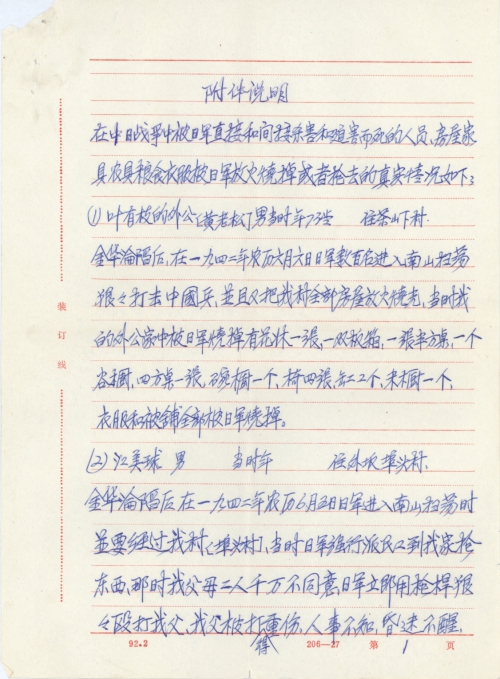 附件说明
在中日战争中被日军直接和间接杀害和迫害而死的人员、房屋家
具农具粮食衣服被日军放火烧掉或者抢去的真实情况如下：
(1) 叶有枝的外公［黄老松］男当时年73岁 住茶山下村
金华淪陷后，在一九四二年农历六月六日日军数百名进入南山扫荡
狠々打击中國兵，並且又把我村全部房屋放火烧光，当时我
的外公家中被日军烧掉有花床一張，一双板箱，一張半方桌，一个
谷橱，四方桌一張，碗橱一个，椅四張，缸2个，米橱一个，
衣服和被鋪全部被日军烧掉。
(2) 江美球 男 当时年 住外坝埠头村
金华淪陷后在一九四二年农历6月 日日军进入南山扫荡时
並要经过我村［埠头村］，当时日军强行派民工到我家抢
东西，那时我父母二人千万不同意，日军立即用枪桿狠
々段打我父，我父被打得重伤，人事不知，昏迷不醒，
装订线
92.2 206—27 第 1 页